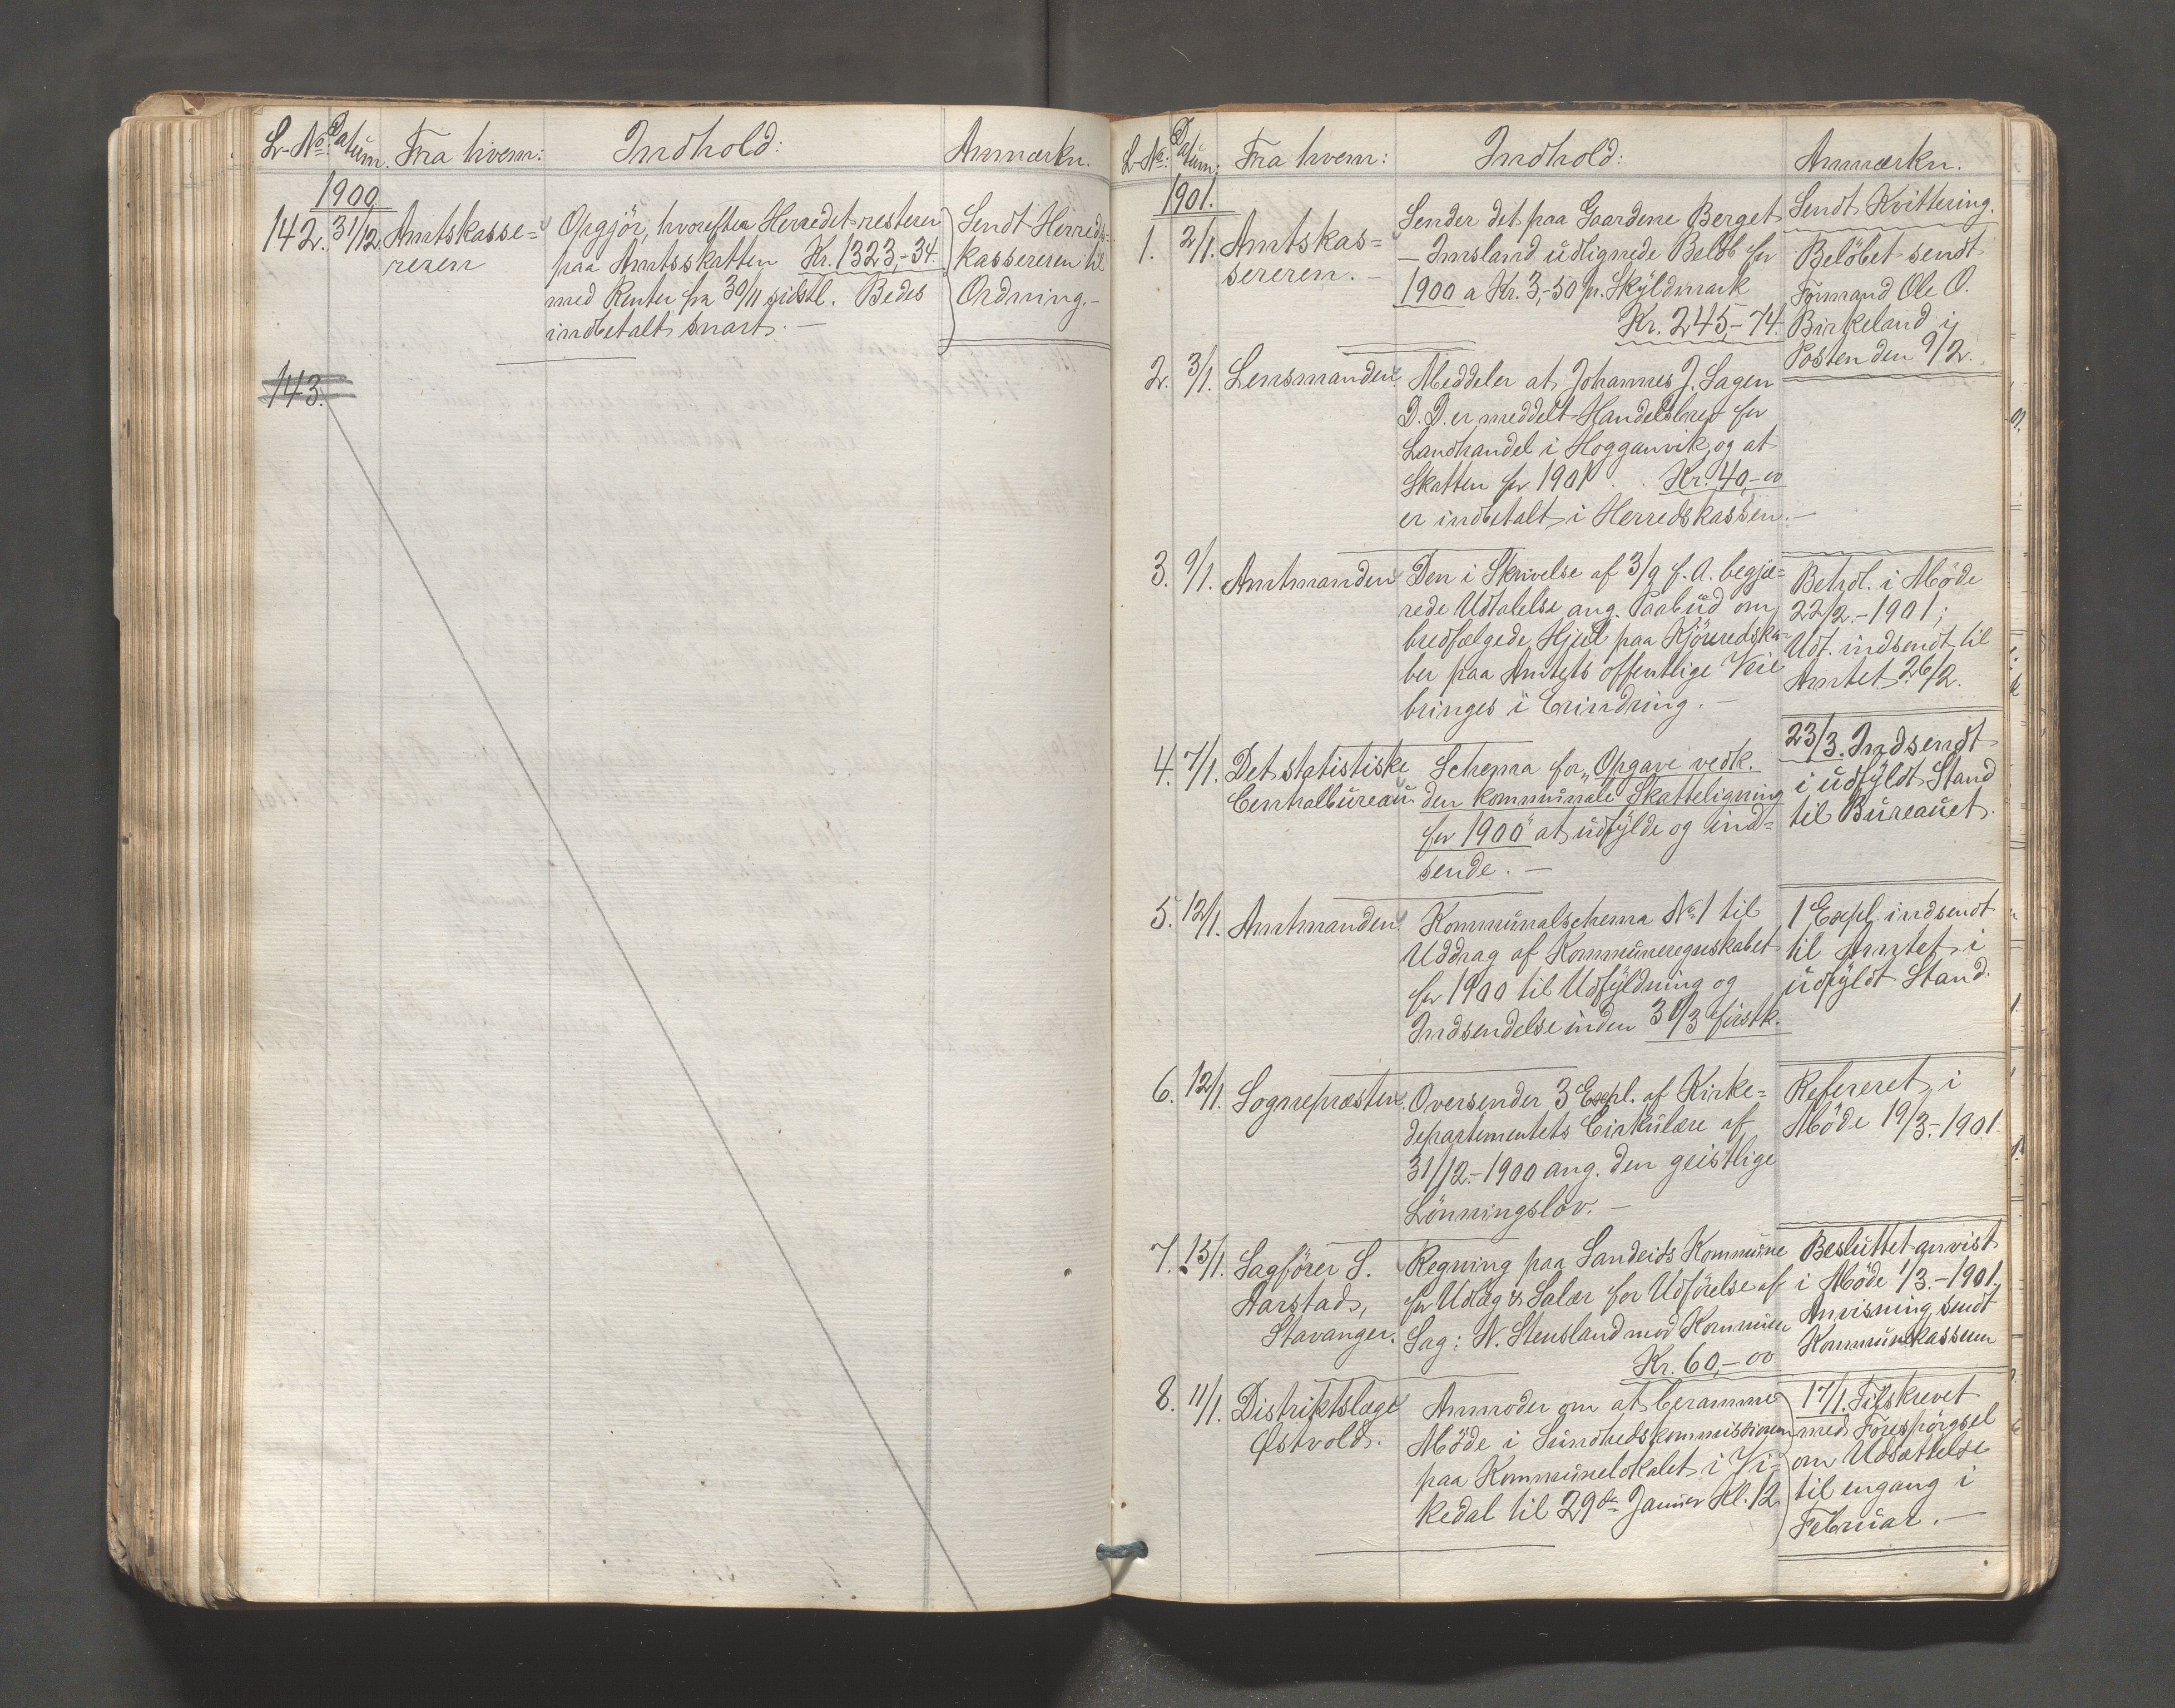 L-No. Datum. Fra hvem: Indhold: Anmærkn.
1900
142. 31/12. Amtskasse=
reren
Opgjör, hvorefter Herredet resterer
paa Amtsskatten Kr. 1323,-34
med Renter fra 30/11 sidstl. Bedes
indbetalt snart. —
Sendt Herreds-
kassereren til
Ordning.-
143.
L-No: Datum: Fra hvem: Indhold: Anmærkn.
1901.
1. 2/1. Amtskas=
sereren. -
Sender det paa Gaardene Berget
— Imsland udlignede Belöb for
1900 a Kr. 3,-50 pr. Skyldmark
Kr. 245,-74.
Sendt Kvittering.
Belöbet sendt
Formand Ole O.
Birkeland i
Posten den 9/2.
2. 3/1. Lensmanden.
Meddeler at Johannes J. Sagen
D. D. er meddelt Handelsbrev for
Landhandel i Hogganvik, og at
Skatten for 1901 . . Kr. 40,-00
er indbetalt i Herredskassen.—
3. 9/1. Amtmanden
Den i Skrivelse af 3/9 f. A. begjæ=
rede Udtalelse ang. Paabud om
bredfælgede Hjul paa Kjöreredska=
ber paa Amtets offentlige Veie
bringes i Erindring. —
Behdl. i Möde
22/2.-1901;
Udt. indsendt til
Amtet 26/2.
4. 7/1. Det statistiske
Centralbureau.
Schema for „Opgave vedk.
den kommunale Skatteligning
for 1900" at udfylde og ind=
sende. —
23/3. Indsendt
i udfyldt Stand
til Bureauet.
5. 12/1. Amtmanden.
Kommunalschema No 1 til
Uddrag af Kommuneregnskabet
for 1900 til Udfyldning og
Indsendelse inden 31/3 førstk.
1 Expl. indsendt
til Amtet i
udfyldt Stand.
6. 12/1. Sognepræsten.
Oversender 3 Expl. af Kirke=
departementets Cirkulære af
31/12.-1900 ang. den geistlige
Lönningslov. —
Refereret i
Möde 19/3.-1901.
7. 15/1. Sagförer S.
Aarstad,
Stavanger.
Regning paa Sandeids Kommune
for Udlæg & Salær for Udförelse af
Sag: N. Stensland mod Kommunen
Kr. 60,-00
Besluttet anvist
i Möde 1/3.-1901.
Anvisning sendt
Kommunekassereren
8. 11/1. Distriktslæge
Østvold.
Anmoder om at beramme
Möde i Sundhedskommissionen
paa Kommunelokalet i Vi=
kedal til 29de Januar Kl. 12.
17/1. Tilskrevet
med Forespörgsel
om Udsættelse
til engang i
Februar. —